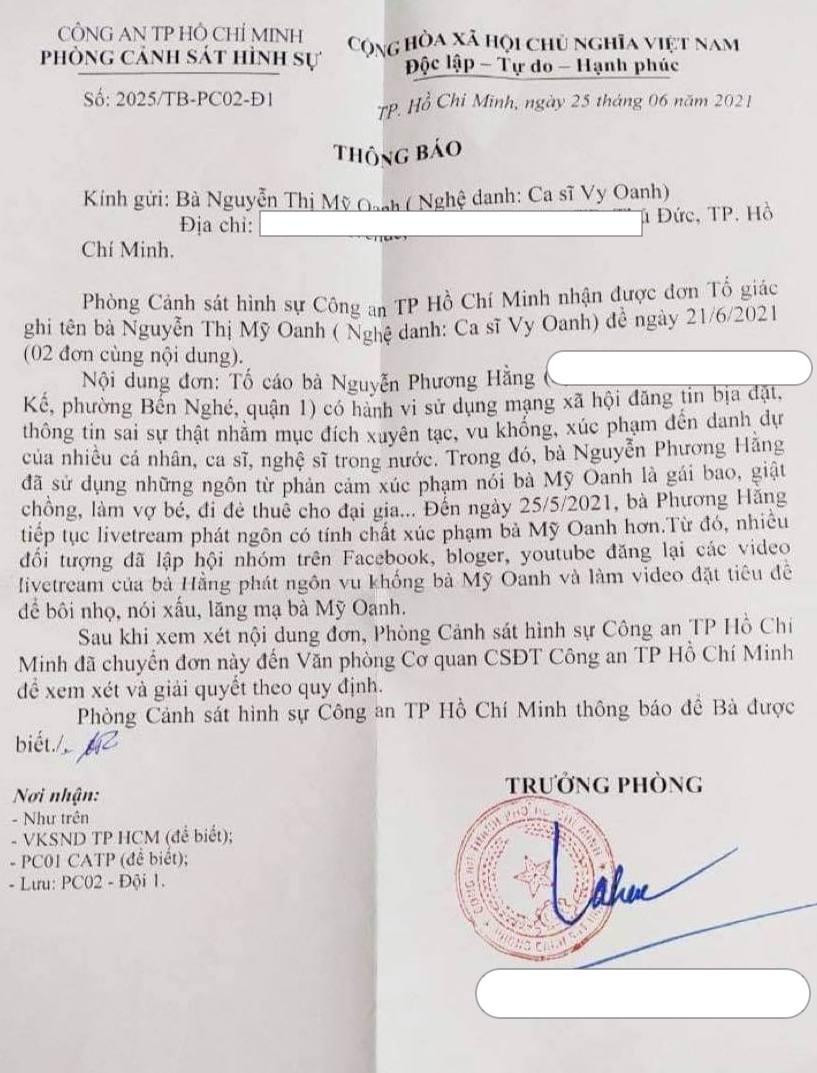 CÔNG AN TP HỒ CHÍ MINH
PHÒNG CẢNH SÁT HÌNH SỰ
CỘNG HÒA XÃ HỘI CHỦ NGHĨA VIỆT NAM
Độc lập – Tự do – Hạnh phúc
Số: 2025/TB-PC02-Đ1
TP. Hồ Chí Minh, ngày 25 tháng 06 năm 2021
THÔNG BÁO
Kính gửi: Bà Nguyễn Thị Mỹ Oanh ( Nghệ danh: Ca sĩ Vy Oanh)
Địa chỉ: Đức, TP. Hồ
Chí Minh.
Phòng Cảnh sát hình sự Công an TP Hồ Chí Minh nhận được đơn Tố giác
ghi tên bà Nguyễn Thị Mỹ Oanh ( Nghệ danh: Ca sĩ Vy Oanh) đề ngày 21/6/2021
(02 đơn cùng nội dung).
Nội dung đơn: Tố cáo bà Nguyễn Phương Hằng (
Kế, phường Bến Nghé, quận 1) có hành vi sử dụng mạng xã hội đăng tin bịa đặt,
thông tin sai sự thật nhằm mục đích xuyên tạc, vu khống, xúc phạm đến danh dự
của nhiều cá nhân, ca sĩ, nghệ sĩ trong nước. Trong đó, bà Nguyễn Phương Hằng
đã sử dụng những ngôn từ phản cảm xúc phạm nói bà Mỹ Oanh là gái bao, giật
chồng, làm vợ bé, đi đẻ thuê cho đại gia... Đến ngày 25/5/2021, bà Phương Hằng
tiếp tục livetream phát ngôn có tính chất xúc phạm bà Mỹ Oanh hơn.Từ đó, nhiều
đối tượng đã lập hội nhóm trên Facebook, bloger, youtube đăng lại các video
livetream của bà Hằng phát ngôn vu khống bà Mỹ Oanh và làm video đặt tiêu đề
để bôi nhọ, nói xấu, lăng mạ bà Mỹ Oanh.
Sau khi xem xét nội dung đơn, Phòng Cảnh sát hình sự Công an TP Hồ Chí
Minh đã chuyển đơn này đến Văn phòng Cơ quan CSĐT Công an TP Hồ Chí Minh
để xem xét và giải quyết theo quy định.
Phòng Cảnh sát hình sự Công an TP Hồ Chí Minh thông báo để Bà được
biết./.
Nơi nhận:
- Như trên
- VKSND TP HCM (để biết);
- PC01 CATP (để biết);
- Lưu: PC02 - Đội 1.
TRƯỞNG PHÒNG